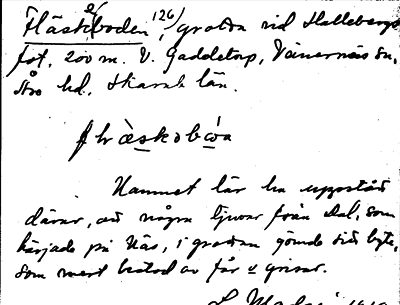 Fläskboden, 126) grotta vid Hallebergs
fot, 200 m. V. Gaddetorp, Vänersnäs sn,
Åse hd, Skarab. län.
Namnet lär ha uppstått
därav, att några tjuvar från Dal, som
härjade på Näs, i grottan gömde sitt byte,
som mest bestod av får o grisar.